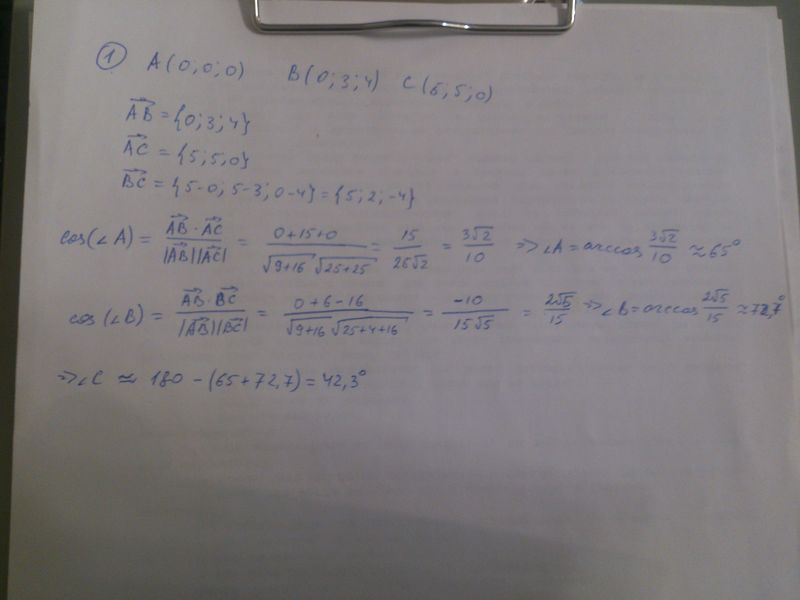 ① A(0;0;0) B(0;3;4) C(5,5;0)
→AB = {0;3;4}
→AC = {5;5,0}
→BC = {5-0; 5-3; 0-4} = {5;2;-4}
cos(∠A) = (→AB · →AC)/(|→AB||→AC|) = (0+15+0)/(√(9+16) √(25+25)) = 15/(25√2) = 3√2/10 => ∠A = arccos 3√2/10 ≈ 65°
cos(∠B) = (→AB · →BC)/(|→AB||→BC|) = (0+6-16)/(√(9+16) √(25+4+16)) = -10/(15√5) = 2√5/15 => ∠B = arccos 2√5/15 ≈ 72,7°
=> ∠C ≈ 180 - (65+72,7) = 42,3°